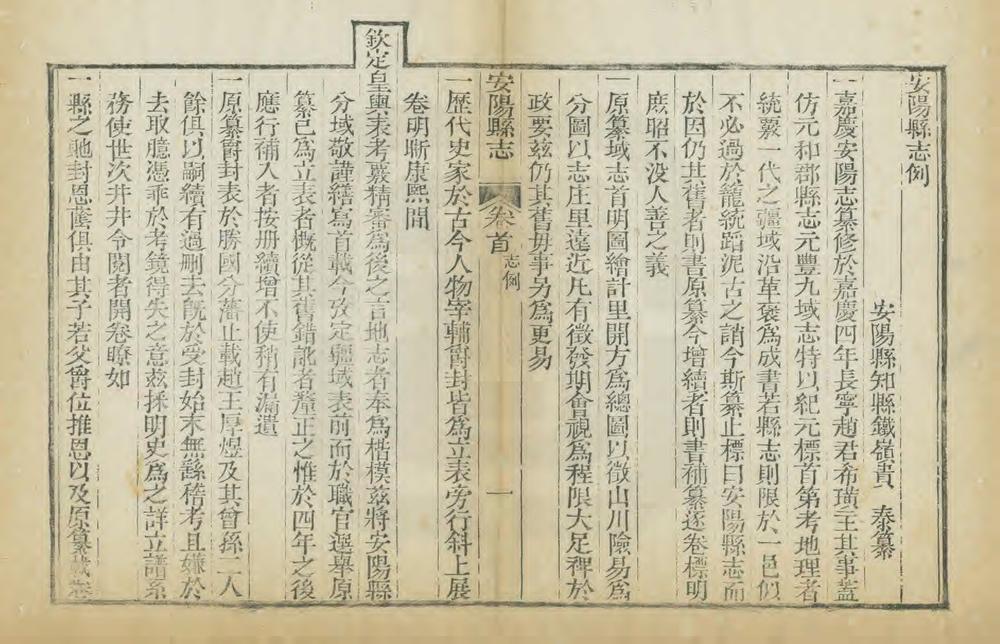 安陽縣志例
安陽縣知縣鐵嶺貴 泰纂
一嘉慶安陽志纂修於嘉慶四年長寧趙君希璜主其事蓋
仿元和郡縣志元豐九域志特以紀元標首第考地理者
統覈一代之疆域沿革裒爲成書若縣志則限於一邑似
不必過於籠統蹈泥古之誚今斯纂止標曰安陽縣志而
於因仍其舊者則書原纂今增續者則書補纂逐卷標明
庶昭不没人善之義
一原纂域志首明圖繪計里開方爲總圖以徵山川險易爲
分圖以志庄里遠近凡有徵發期會視爲程限大足裨於
政要兹仍其舊毋事另爲更易
安陽縣志 卷首 志例 一
一歷代史家於古今人物宰輔爵封皆爲立表旁行斜上展
卷明晰康熙間
欽定皇輿表考覈精審爲後之言地志者奉爲楷模兹將安陽縣
分域敬謹繕爲首載今攷定疆域表前而於職官選舉原
纂已爲立表者慨從其舊錯訛者釐正之惟於四年之後
應行補入者按册續增不使稍有漏遺
一原纂爵封表於勝國分藩止載趙王厚煜及其曾孫二人
餘俱以嗣續有過删去旣於受封始末無繇稽考且嫌於
去取臆憑乖於考鏡得失之意兹採明史爲之詳立譜系
務使世次井井令閱者開卷瞭如
一縣之馳封恩蔭俱由其子若父爵位推恩以及原纂載卷